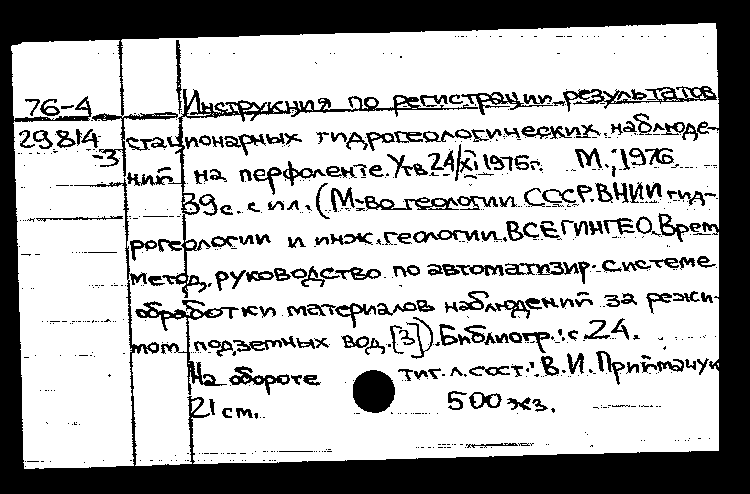 76-4 Инструкция по регистрации результатов
29814 стационарных гидрогеологических наблюде-
-3 ний на перфоленте. Утв. 24/XI 1975г. М., 1976.
39с. с ил. (М-во геологии СССР. ВНИИ гид-
рогеологии и инж. геологии. ВСЕГИНГЕО. Врем
метод. руководство по автоматизир. системе
обработки материалов наблюдений за режи-
мом подземных вод. [3]). Библиогр.: с. 24.
На обороте тит. л. сост.: В.И. Приймачук
21 см. 500 экз.